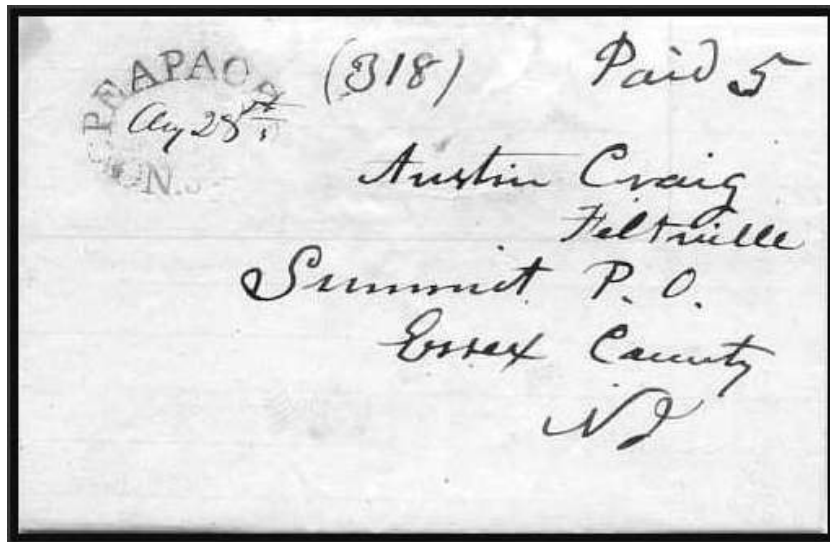 PEAPACK
Aug 28th
N.J.
(318)
Paid 5
Austin Craig
Feltville
Summit P. O.
Essex County
NJ